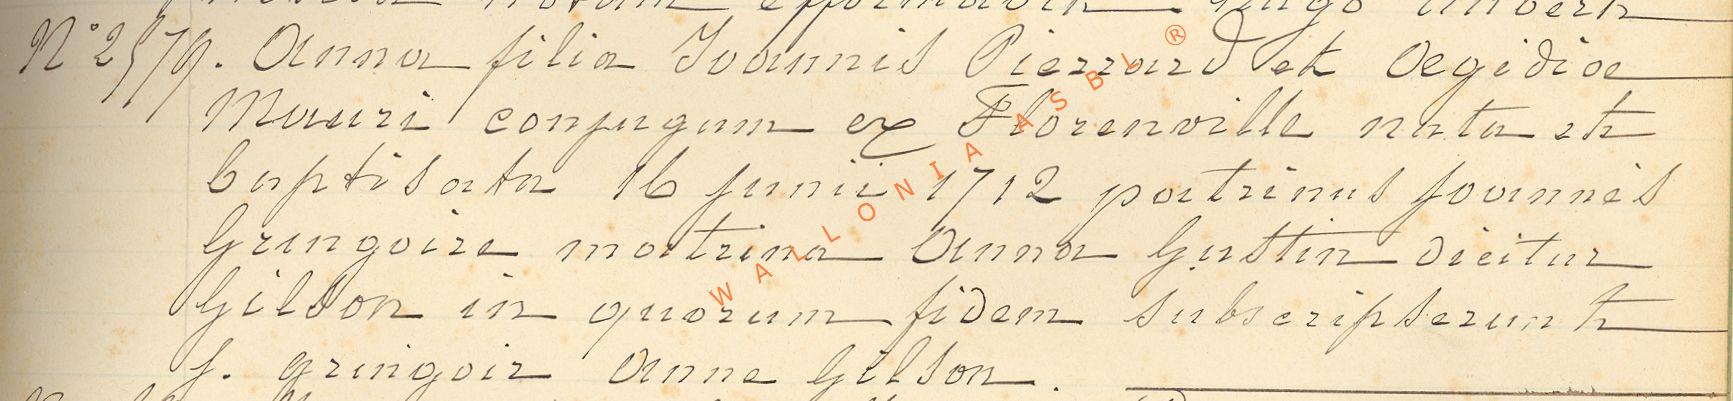 N° 2579. Anna filia Joannis Pierrard et Oegidioe
Mauri conjugum ex Florenville nata et
baptisata 16 junii 1712 patrinus joannes
Gringoire matrina Anna Gustin dicitur
Gilson in quorum fidem subscripserunt
j. gringoir Anne Gilson.
WALLONIA ASBL ®